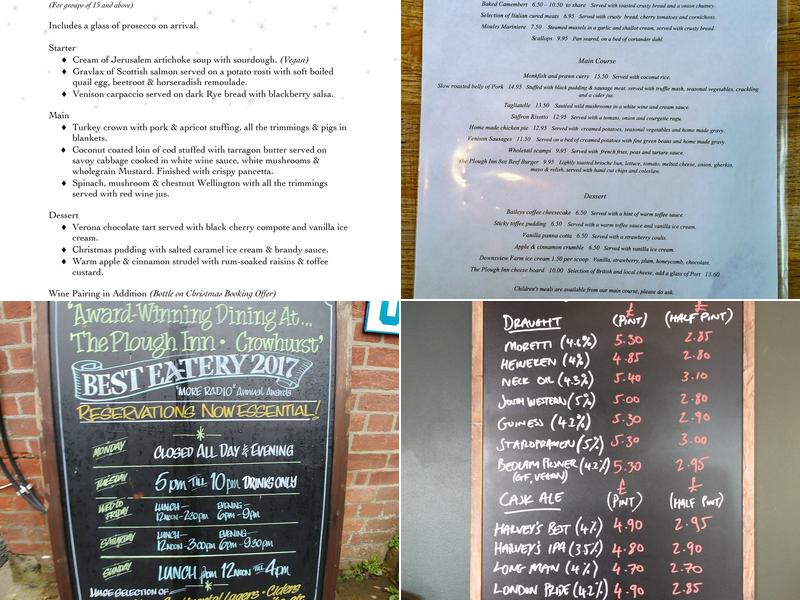 (For groups of 15 and above)
Includes a glass of prosecco on arrival.
Starter
♦ Cream of Jerusalem artichoke soup with sourdough. (Vegan)
♦ Gravlax of Scottish salmon served on a potato rosti with soft boiled
quail egg, beetroot & horseradish remoulade.
♦ Venison carpaccio served on dark Rye bread with blackberry salsa.
Main
♦ Turkey crown with pork & apricot stuffing, all the trimmings & pigs in
blankets.
♦ Coconut coated loin of cod stuffed with tarragon butter served on
savoy cabbage cooked in white wine sauce, white mushrooms &
wholegrain Mustard. Finished with crispy pancetta.
♦ Spinach, mushroom & chestnut Wellington with all the trimmings
served with red wine jus.
Dessert
♦ Verona chocolate tart served with black cherry compote and vanilla ice
cream.
♦ Christmas pudding with salted caramel ice cream & brandy sauce.
♦ Warm apple & cinnamon strudel with rum-soaked raisins & toffee
custard.
Wine Pairing in Addition (Bottle on Christmas Booking Offer)
Baked Camembert 6.50 – 10.50 to share Served with toasted crusty bread and a onion chutney.
Selection of Italian cured meats 6.95 Served with crusty bread, cherry tomatoes and cornichons.
Moules Mariniere 7.50 Steamed mussels in a garlic and shallot cream, served with crusty bread.
Scallops 9.95 Pan seared, on a bed of coriander dahl.
Main Course
Monkfish and prawn curry 15.50 Served with coconut rice.
Slow roasted belly of Pork 14.95 Stuffed with black pudding & sausage meat, served with truffle mash, seasonal vegetables, crackling
and a cider jus.
Tagliatelle 13.50 Sautéd wild mushrooms in a white wine and cream sauce.
Saffron Risotto 12.95 Served with a tomato, onion and courgette ragu.
Home made chicken pie 12.95 Served with creamed potatoes, seasonal vegetables and home made gravy.
Venison Sausages 11.50 Served on a bed of creamed potatoes with fine green beans and home made gravy.
Wholetail scampi 9.95 Served with french fries, peas and tartare sauce.
The Plough Inn 8oz Beef Burger 9.95 Lightly toasted brioche bun, lettuce, tomato, melted cheese, onion, gherkin,
mayo & relish, served with hand cut chips and coleslaw.
Dessert
Baileys coffee cheesecake 6.50 Served with a hint of warm toffee sauce.
Sticky toffee pudding 6.50 Served with a warm toffee sauce.
Vanilla panna cotta 6.50 Served with a strawberry coulis.
Apple & cinnamon crumble 6.50 Served with vanilla ice cream.
Downsview Farm ice cream 1.50 per scoop Vanilla, strawberry, plum, honeycomb, chocolate.
The Plough Inn cheese board 10.00 Selection of British and local cheese, add a glass of Port 13.60
Children's meals are available from our main course, please do ask.
'Award-Winning Dining At...
The Plough Inn · Crowhurst'
BEST EATERY 2017
"MORE RADIO" Annual Awards
RESERVATIONS NOW ESSENTIAL!
MONDAY CLOSED ALL DAY & EVENING
TUESDAY 5pm TILL 10pm DRINKS ONLY
WED TO FRIDAY LUNCH- 12NOON-2:30PM EVENING- 6PM-9PM
SATURDAY LUNCH- 12NOON-3:00PM EVENING- 6PM-9:30PM
SUNDAY LUNCH from 12NOON TILL 4PM
HUGE SELECTION OF
Continental Lagers · Ciders
DRAUGHT £ (PINT) £ (HALF PINT)
MORETTI (4.6%) 5.30 2.85
HEINEKEN (4%) 4.85 2.80
NECK OIL (4.3%) 5.40 3.10
SOUTH WESTERN (5%) 5.00 2.80
GUINESS (4.2%) 5.30 2.90
STAROPRAMEN (5%) 5.30 3.00
BEDLAM PILSNER (4.2%) 5.30 2.95
(GF, VEGAN)
CASK ALE £ (PINT) £ (HALF PINT)
HARVEY'S BEST (4%) 4.90 2.95
HARVEY'S IPA (3.5%) 4.80 2.90
LONG MAN (4%) 4.70 2.70
LONDON PRIDE (4.2%) 4.90 2.85